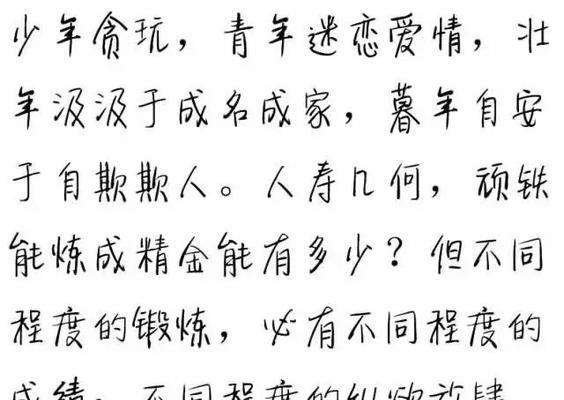 少年贪玩，青年迷恋爱情，壮
年汲汲于成名成家，暮年自安
于自欺欺人。人寿几何，顽铁
能炼成精金能有多少？但不同
程度的锻炼，必有不同程度的
成绩；不同程度的纵欲放肆